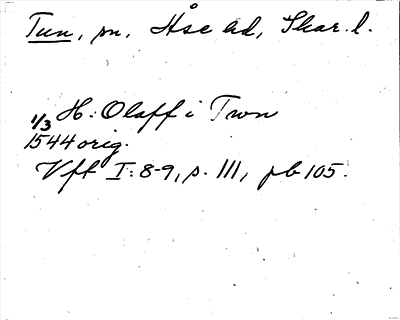 Tun, sn, Åse hd, Skar. l.
H: Olaff i Twn
1/3
1544 orig.
Vft I: 8-9, s. 111, pb 105.